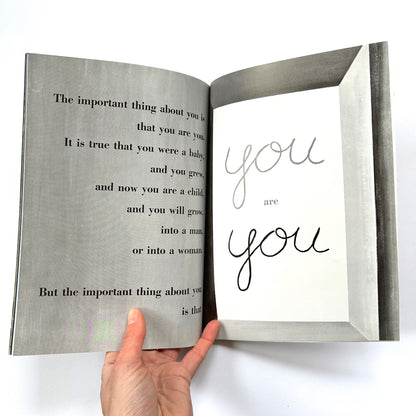 The important thing about you is
that you are you.
It is true that you were a baby,
and you grew,
and now you are a child,
and you will grow,
into a man,
or into a woman.
But the important thing about you
is that
you
are
you